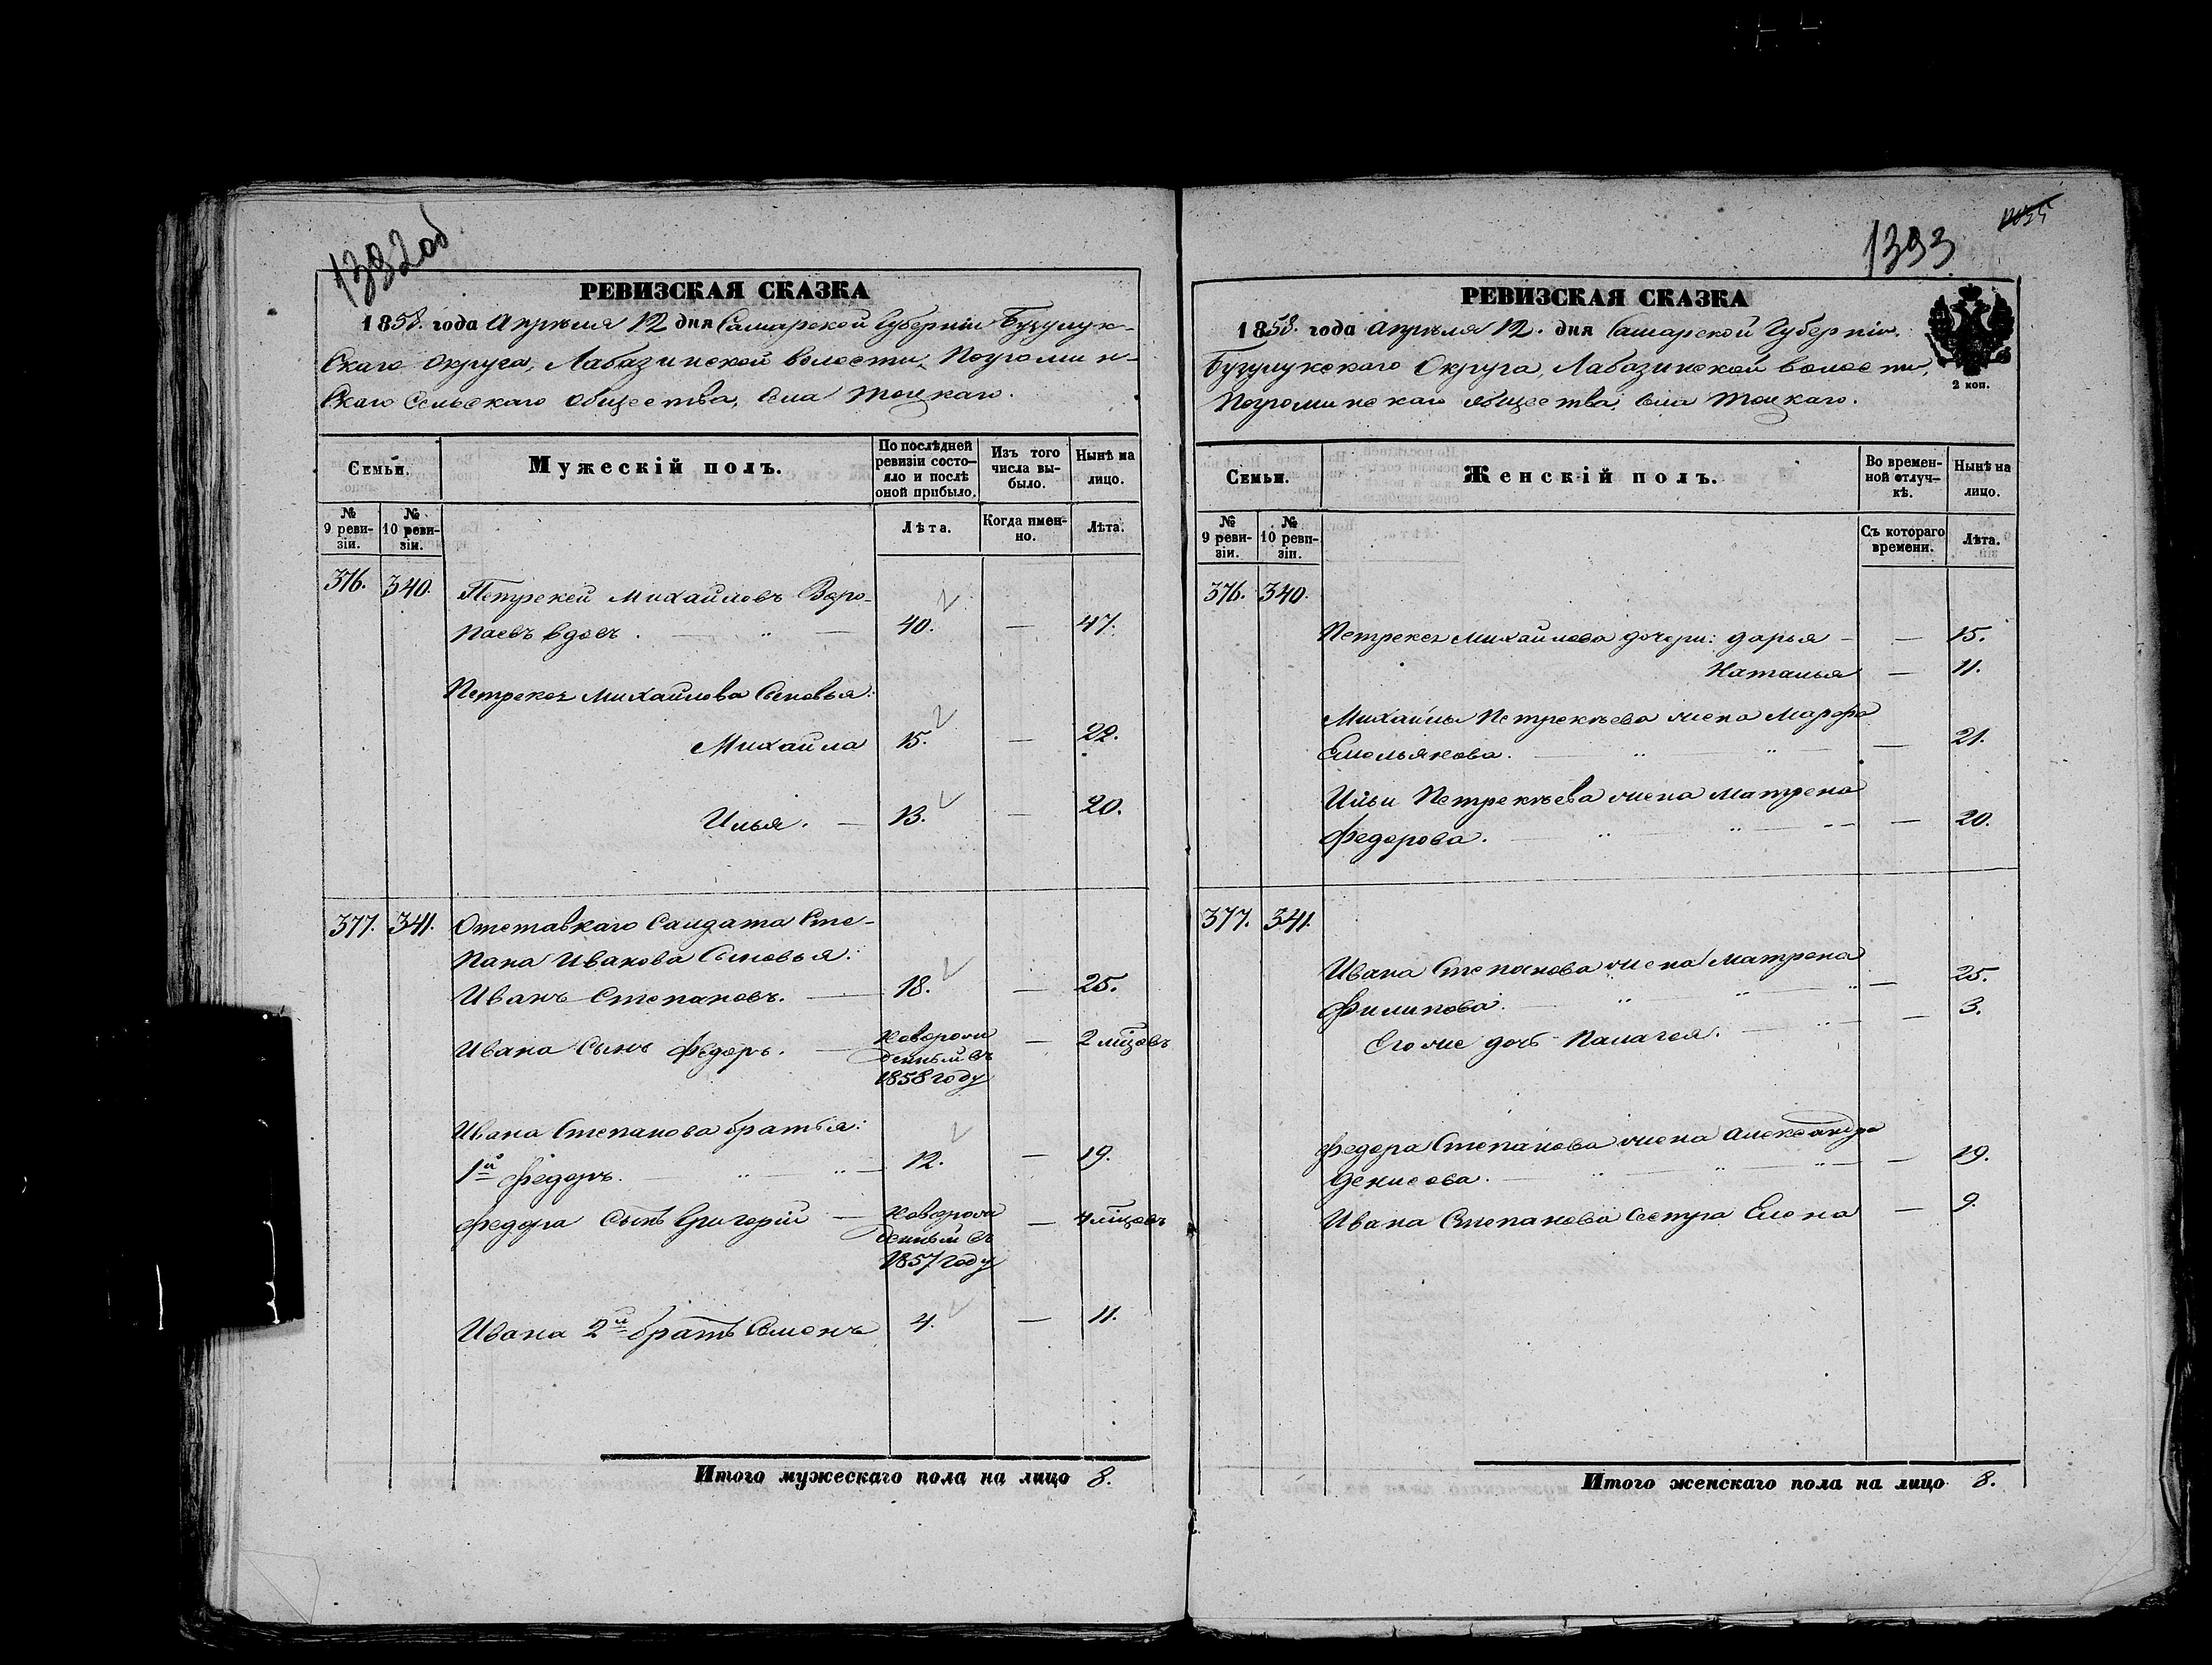 1392об
РЕВИЗСКАЯ СКАЗКА
1858. года Апрѣля 12 дня Самарской Губерніи Бузулук-
скаго Округа, Лабазинской волости, Погромин-
скаго Сельскаго общества, села Тоцкаго.
Семьи.
Мужескій полъ.
По послѣдней ревизіи состо-
яло и послѣ оной прибыло.
Изъ того числа вы-
было.
Нынѣ на лицо.
№ 9 реви-
зіи.
№ 10 реви-
зіи.
Лѣта.
Когда имен-
но.
Лѣта.
376. 340. Петрекей Михайловъ Воро-
паевъ вдовъ. 40. — 47.
Петрекея Михайлова Сыновья:
Михайла 15. — 22.
Илья. — 13. — 20.
377. 341. Отставнаго Салдата Сте-
пана Иванова Сыновья:
Иванъ Степановъ. — 18. — 25.
Ивана Сынъ Федоръ. — новорож
денный въ
1858 году — 2 мѣсцовъ
Ивана Степанова братья:
1й Федоръ. — 12. — 19.
Федора Сынъ Григорій — новорож
денный въ
1857 году — 4 мѣсцовъ
Ивана 2й братъ Семенъ 4. — 11.
Итого мужескаго пола на лицо 8.
1393
РЕВИЗСКАЯ СКАЗКА
1858. года Апрѣля 12. дня Самарской Губерніи.
Бузулукскаго Округа, Лабазинской волости,
Погроминскаго общества, села Тоцкаго.
2 коп.
Семьи.
Женскій полъ.
Во времен-
ной отлуч-
кѣ.
Нынѣ на лицо.
№ 9 реви-
зіи.
№ 10 реви-
зіи.
Съ котораго времени.
Лѣта.
376. 340.
Петрекея Михайлова дочери: Дарья — — 15.
Наталья — 11.
Михайлы Петрекѣева жена Марфа
Емельянова. — 21.
Ильи Петрекѣева жена Матрена
Федорова. — 20.
377. 341.
Ивана Степанова жена Матрена
Филипова. — 25.
Его же дочь Палагея. — 3.
Федора Степанова жена Александра
Денисова. — 19.
Ивана Степанова Сестра Елена — 9.
Итого женскаго пола на лицо 8.